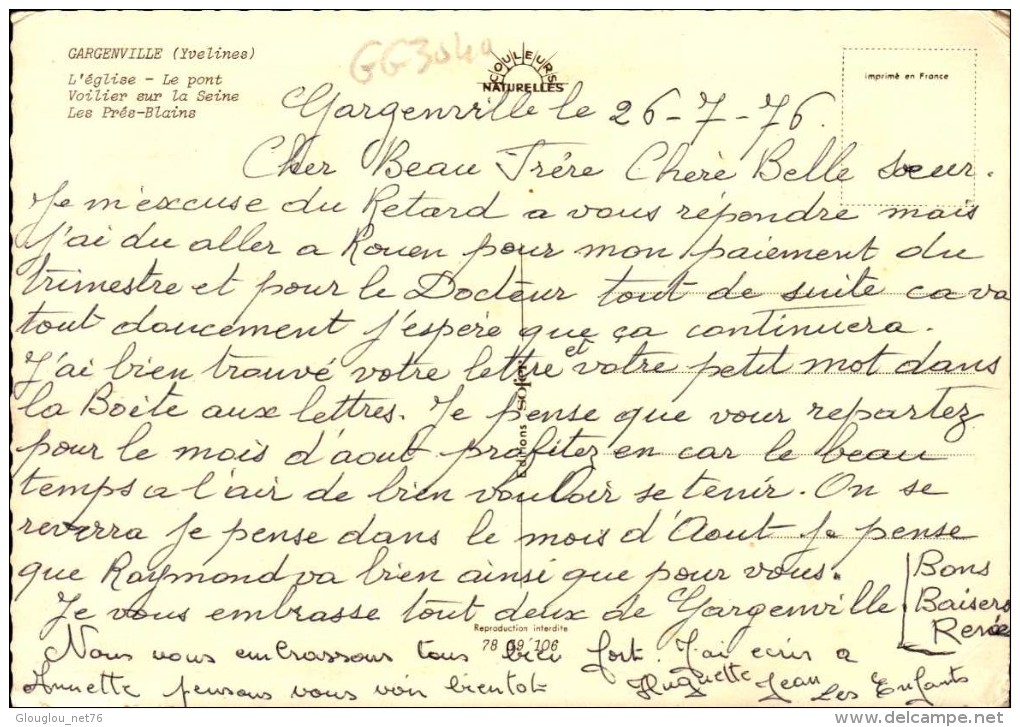 GARGENVILLE (Yvelines)
L'église - Le pont
Voilier sur la Seine
Les Prés-Blains
GG3040
COULEURS
NATURELLES
imprimé en France
Gargenville le 26-7-76.
Cher Beau Frére Cherè Belle soeur.
Je m'éxcuse du Retard a vous répondre mais
j'ai du aller a Rouen pour mon paiement du
trimestre et pour le Docteur tout de suite ca va
tout doucement j'espére que ça continuera.
J'ai bien trouvé votre lettre et votre petit mot dans
la Boite aux lettres. Je pense que vour repartez
pour le mois d'aout profitez en car le beau
temps a l'air de bien vouloir se tenir. On se
reverra je pense dans le mois d'Aout je pense
que Raymond va bien ainsi que pour vous.
Je vous embrasse tout deux de Gargenville
Bons
Baisers
Renée
Nous vous embrassons tous bien fort. J'ai ecris a
Annette pensons vous voir bientot Huguette Jean Les Enfants
Editions sofer
Reproduction interdite
78 09 106
Glouglou_net76
delcampe.net